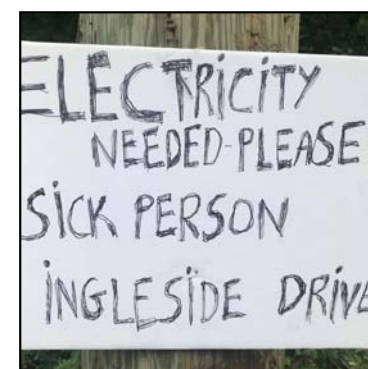 ELECTRICITY
NEEDED-PLEASE
SICK PERSON
INGLESIDE DRIVE